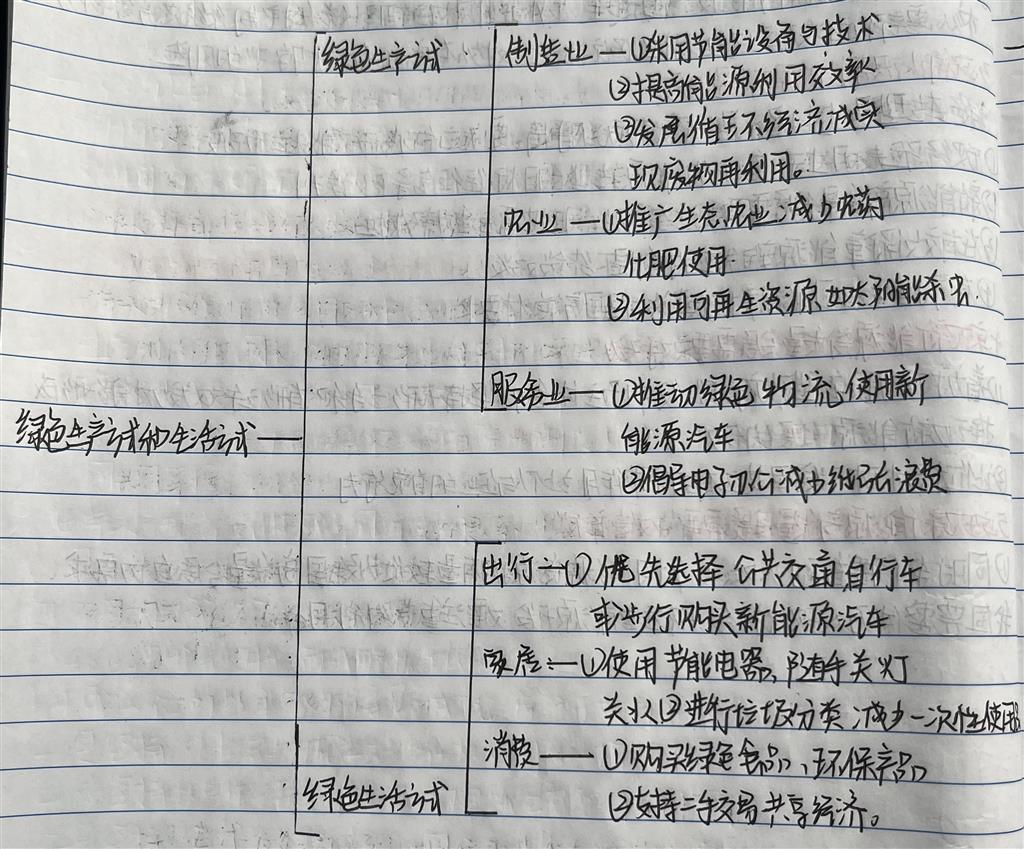 绿色生产方式
制造业 — ①采用节能设备与技术
②提高能源利用效率
③发展循环经济减实
现废物再利用。
农业 — ①推广生态农业,减少农药
化肥使用.
②利用可再生资源 如太阳能杀虫.
服务业 — ①推动绿色物流,使用新
能源汽车
②倡导电子办公减少纸张浪费
绿色生产方式和生活方式 —
出行 — ① 优先选择 公共交通 自行车
或步行 购买新能源汽车
家居: — ①使用节能电器、随手关灯
关水 ②进行垃圾分类,减少一次性使用
消费 — ①购买绿色食品、环保产品
②支持二手交易 共享经济。
绿色生活方式